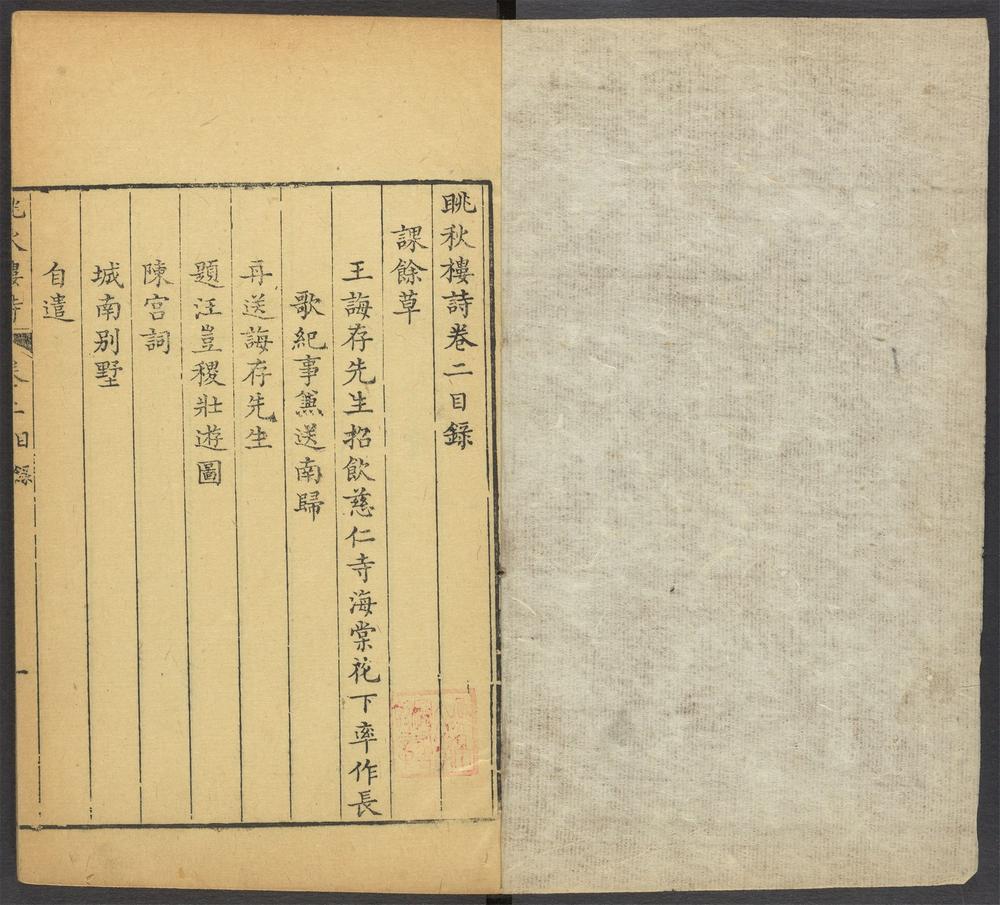 眺秋樓詩卷二目錄
課餘草
王誨存先生招飲慈仁寺海棠花下率作長
歌紀事兼送南歸
再送誨存先生
題汪豈稷壯遊圖
陳宮詞
城南別墅
自遣
眺秋樓詩 卷二目錄 一